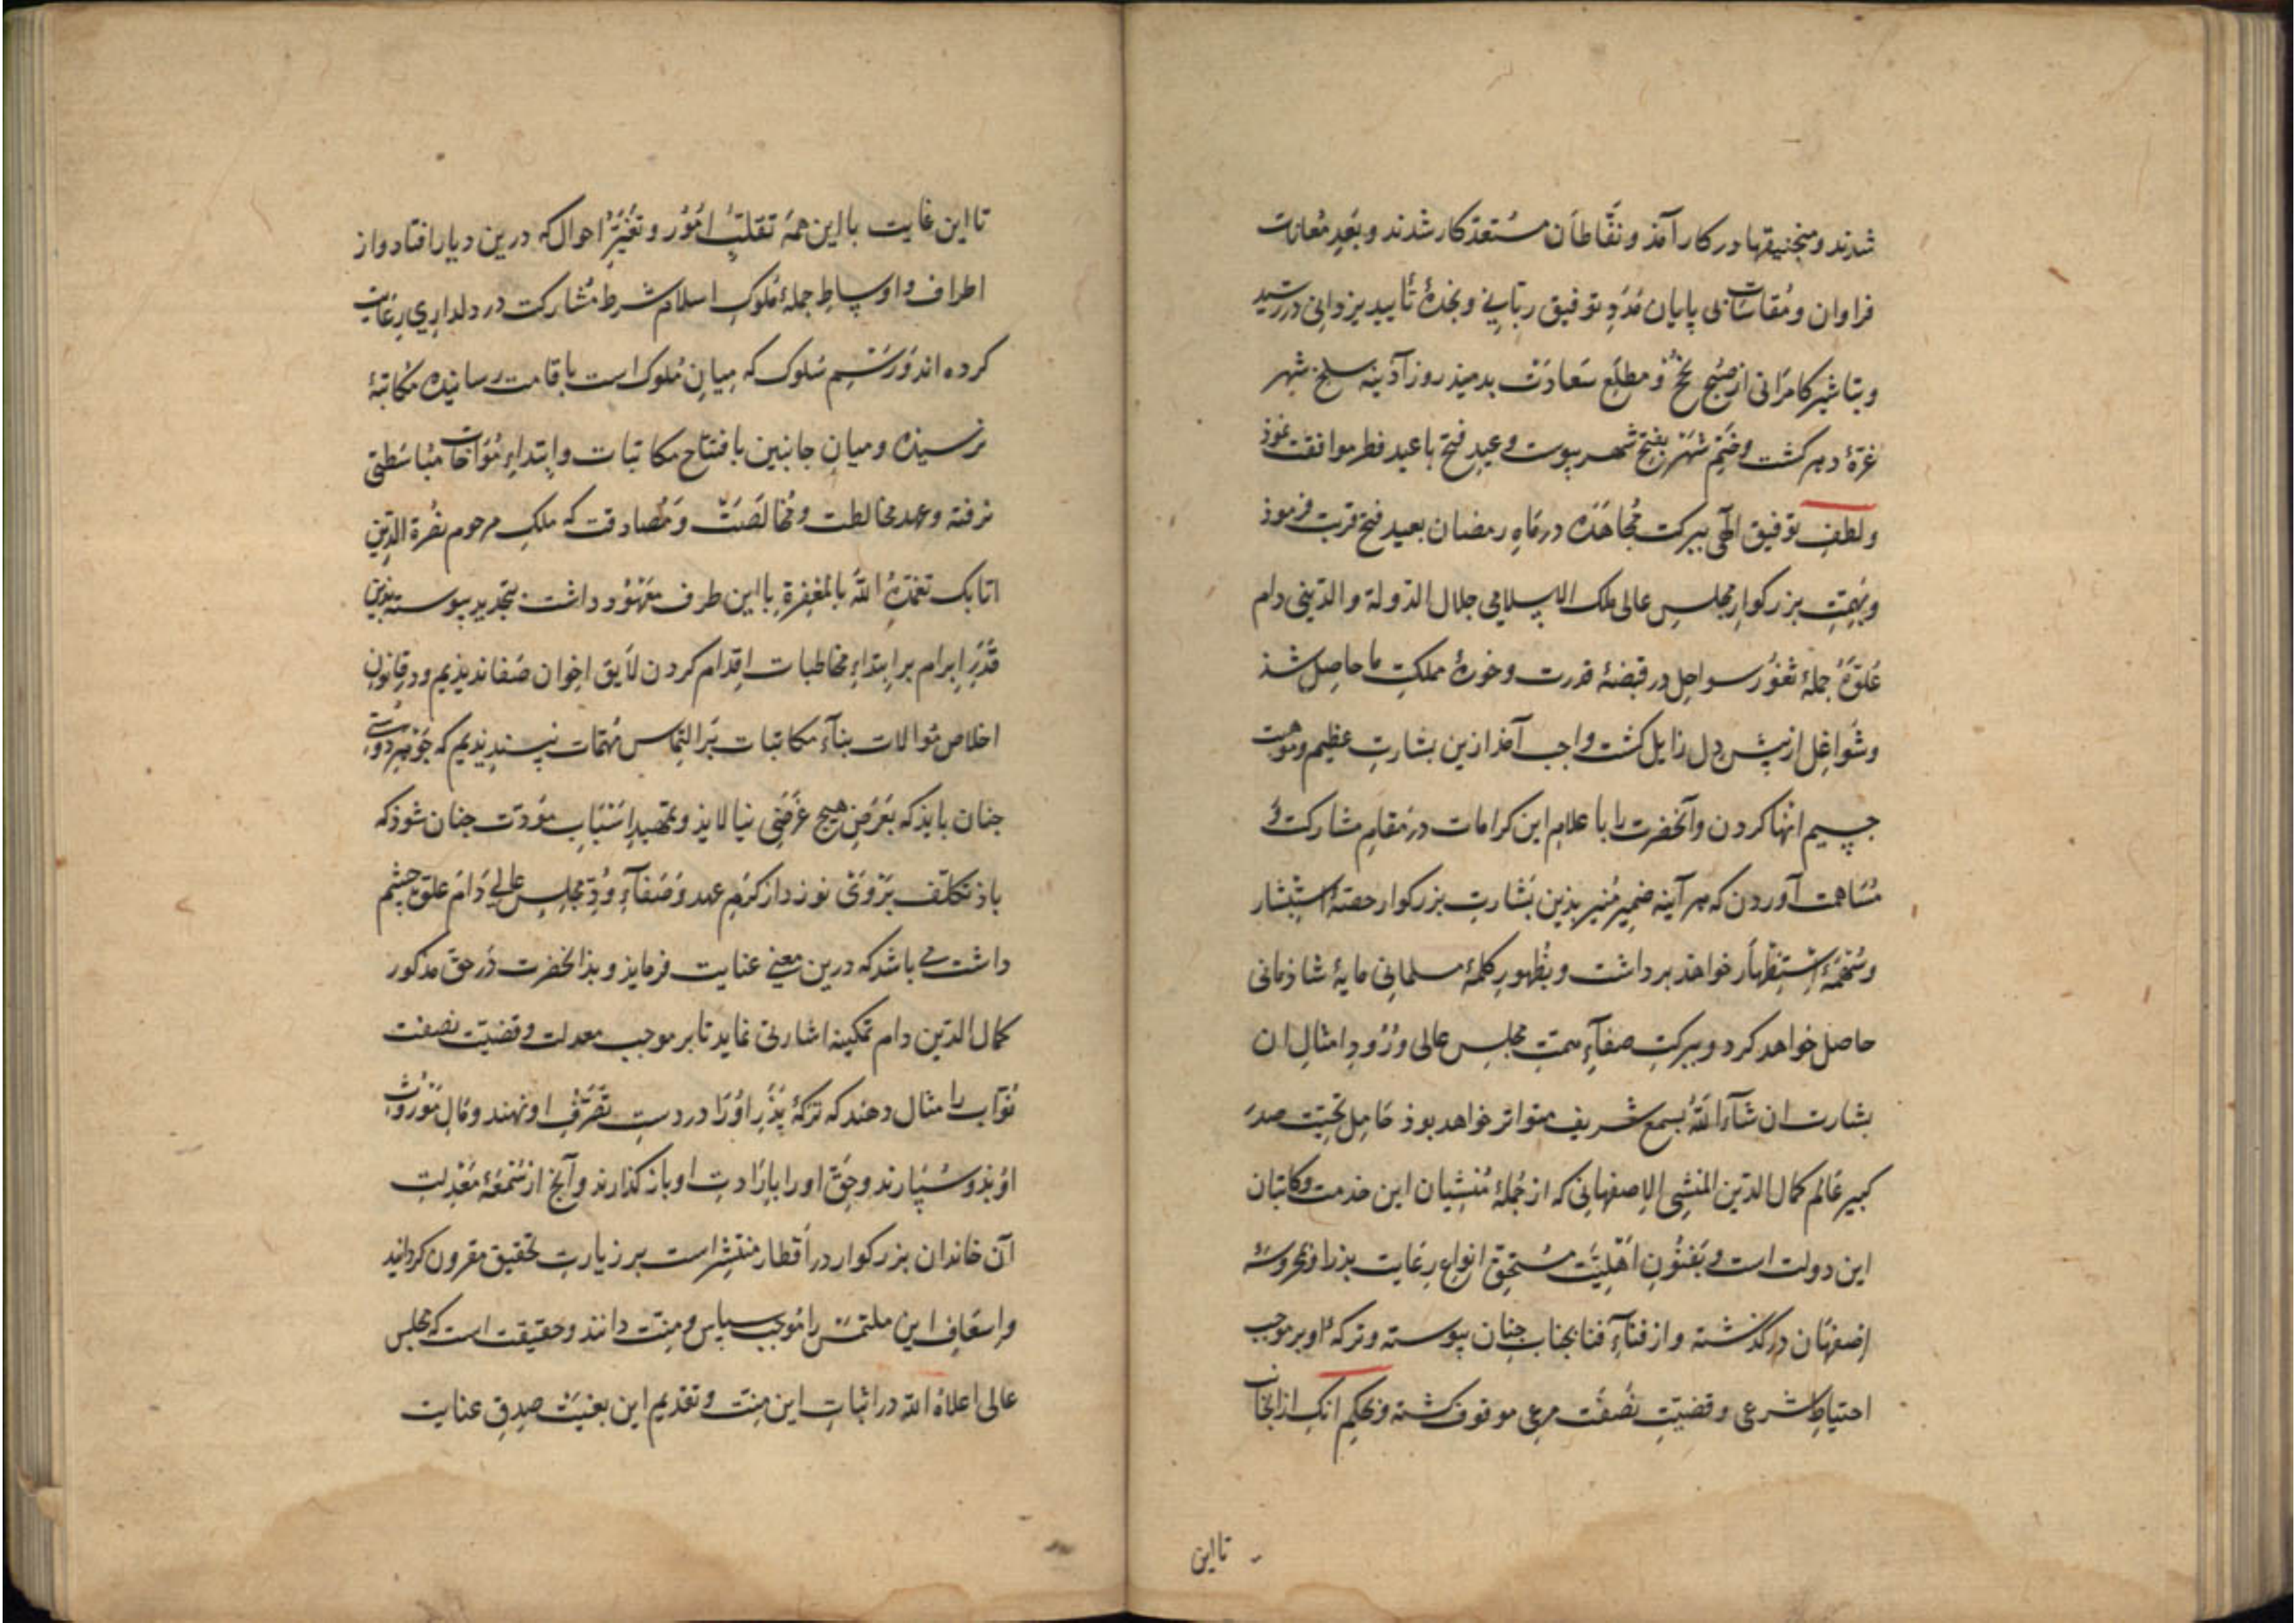 شدند و منجنیقها در کار آمذ و نفّاطان مستعدّ کار شدند و بعد معانات
فراوان و مقاسات بی پایان مدد توفیق ربانی و نجدهٔ تأیید یزدانی در رسید
و تباشیر کامرانی از صبح نجح و مطلع سعادت بدمیذ روز آذینه سلخ شهر
غرّهٔ دهر گشت و ختم شهر بفتح شهر پیوست و عید فتح با عید فطر موافقت نموذ
و لطف توفیق الهی ببرکت مجاهده در ماه رمضان بعید فتح قربت فرموذ
و بهمّت بزرکوار مجلس عالی ملک الاسلامی جلال الدولة والدینی دام
علوّه جملهٔ ثغور سواحل در قبضهٔ قدرت و حوزهٔ مملکت ما حاصل شذ
و شواغل از پیش دل زایل کشت واجب آمذ ازین بشارت عظیم و موهبت
جسیم انها کردن و آنحضرت را با علام این کرامات در مقام مشارکت و
مساهمت آوردن که هر آینه ضمیر منیر بذین بشارت بزرکوار حصّهٔ استبشار
و استظهار خواهذ برداشت و بظهور کلمهٔ مسلمانی مایهٔ شاذمانی
حاصل خواهد کرد و ببرکت صفآء همت مجلس عالی ورود امثال ان
بشارت ان شآء اللّه بسمع شریف متواتر خواهد بوذ حامل تحیّت صدر
کبیر عالم کمال الدین المنشی الاصفهانی که از جملهٔ منشیان این خدمت و کاتبان
این دولت است و بفنون اهلیّت مستحقّ انواع رعایت بذر او بمحروسهٔ
اصفهان درگذشته و از فنآء فنا بجناب جنان پیوسته و ترکهٔ او بر موجب
احتیاط شرعی و قضیّت نصفت مرعی موقوف کشته و بحکم انک از انجانب
تا این
تا این غایت با این همه تقلّب امور و تغیّر احوال که درین دیار افتاد و از
اطراف و اوساط جملهٔ ملوک اسلام شرط مشارکت در دلداری رعایت
کرده اند و رسم سلوک که میان ملوک است باقامت رسانیده مکاتبهٔ
نرسیذه و میان جانبین بافتتاح مکاتبات و ابتداء مؤاخات مباسطتی
نرفته و عهد مخالطت و مخالصت و مصادقت که ملک مرحوم نصرة الدین
اتابک تغمّده اللّه بالمغفرة با این طرف معهود داشت بتجدید پیوسته بدین
قدر ابرام بر ابتداء مخاطبات اقدام کردن لایق اخوان صفا ندیذیم و در قانون
اخلاص موالات بنآء مکاتبات بر التماس مهمّات نپسندیذیم که جوهر دوستی
جنان بایذ که بعرض هیچ غرضی نیالایذ و تمهید اسباب مودّت جنان شوذ که
باذ تکلف بر وی نوزد از کرم عهد و صفآء ودّ مجلس عالی دام علوّه چشم
داشت می باشد که درین معنی عنایت فرمایذ و بذانحضرت در حق مذکور
کمال الدین دام تمکینه اشارتی نماید تا بر موجب معدلت و قضیّت نصفت
نوّاب را مثال دهند که ترکهٔ پذر او را در دست تصرّف او نهند و مال موروث
او بذو سپارند و حقّ او را با رادت او باز کذارند و آنج از سمعهٔ معدلت
آن خاندان بزرکوار در اقطار منتشر است بر زیارت تحقیق مقرون کردانید
و اسعاف این ملتمس را موجب سپاس و منت دانند و حقیقت است که مجلس
عالی اعلاه اللّه در اثبات این منت و تقدیم این بغیت صدق عنایت